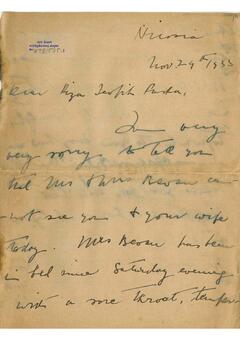 Nicosia
Nov. 29th 1933
Dear Riza Tewfik Pasha,
I'm very
very sorry to tell you
that Mrs Bevan can-
not see you & your wife
today. Mrs Bevan has been
in bed since Saturday evening
with a sore throat, temper-